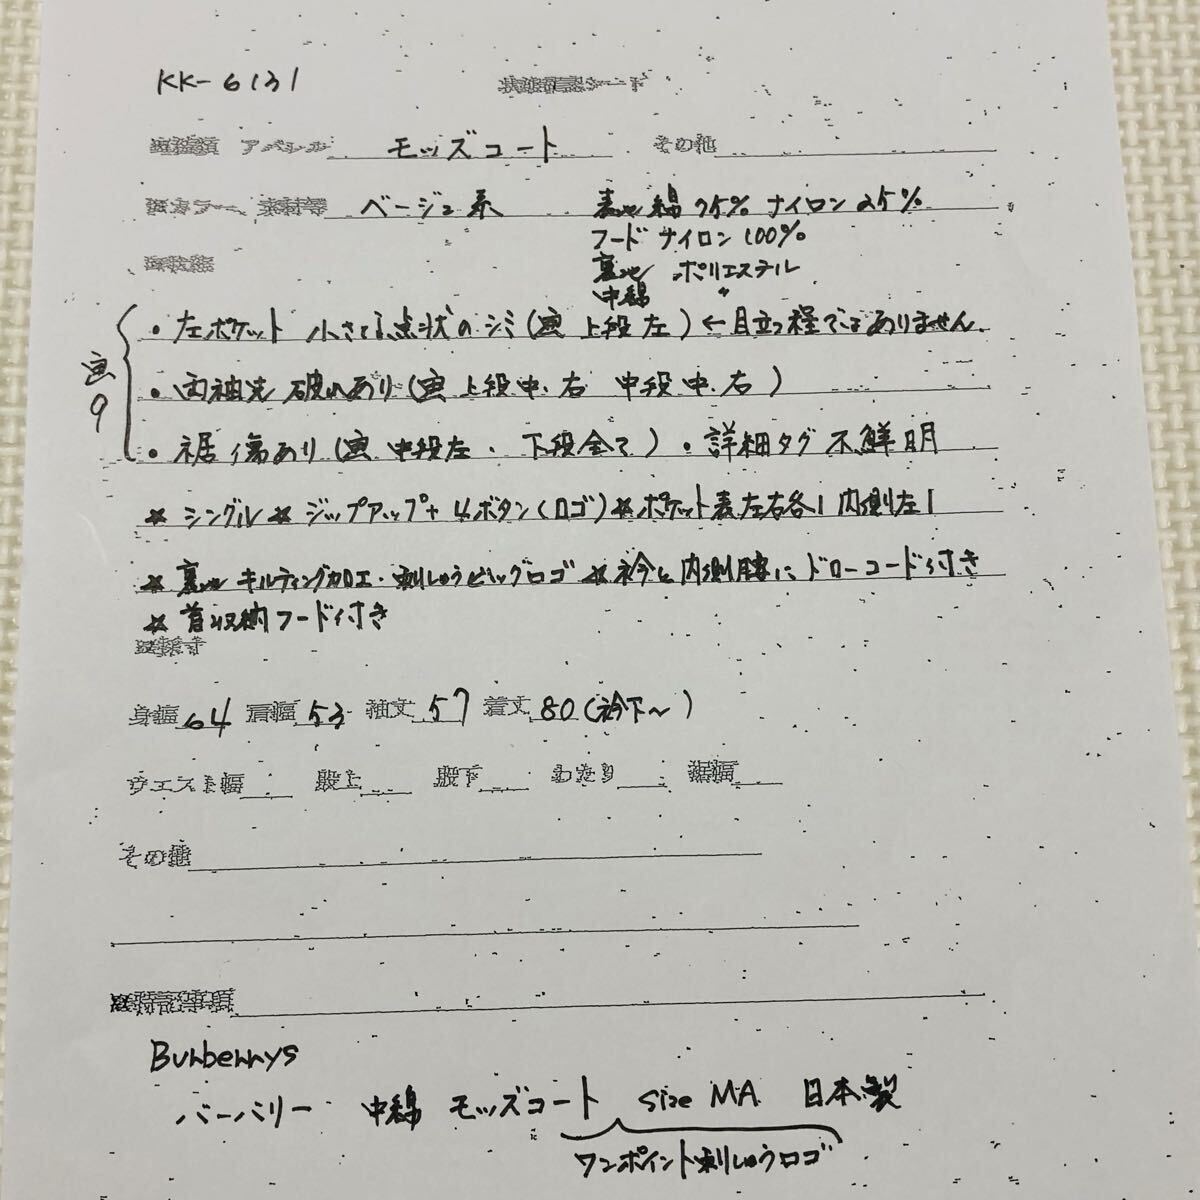 KK-6131 状態確認シート
アパレル モッズコート その他
カラー、素材等 ベージュ系 表地 綿75% ナイロン25%
フード ナイロン100%
裏地 ポリエステル
中綿 〃
画9
・左ポケット 小さな点状のシミ(画 上段左)←目立つ程ではありません.
・両袖先 破れあり(画 上段中.右 中段中.右)
・裾 傷あり(画 中段左.下段全て)・詳細タグ不鮮明
☆シングル☆ジップアップ+4ボタン(ロゴ)☆ポケット表左右各1内側左1
☆裏地 キルティング加工・刺しゅうビッグロゴ ☆衿と内側腰にドローコード付き
☆首収納フード付き
身幅64 肩幅53 袖丈57 着丈80(衿下~)
ウエスト幅 股上 股下 わたり 裾幅
その他
特記事項
Burberrys
バーバリー 中綿 モッズコート size MA 日本製
ワンポイント刺しゅうロゴ